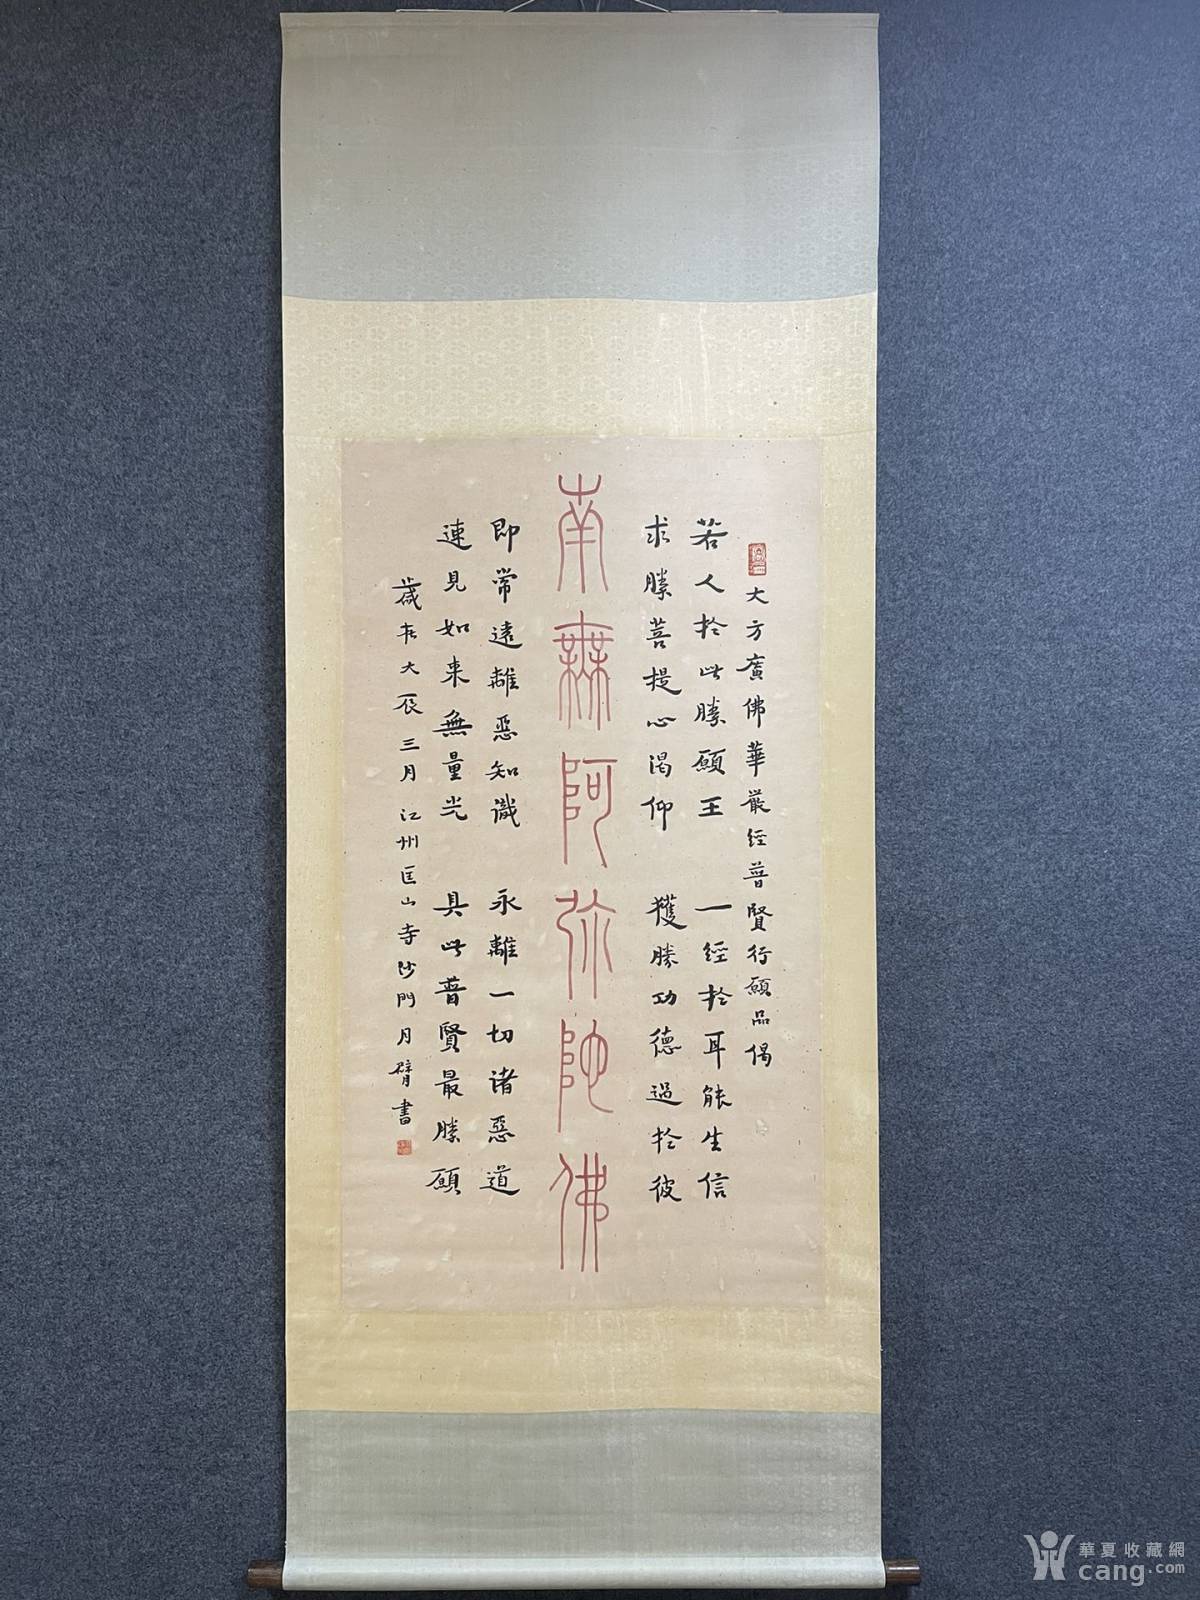 大方廣佛華嚴經普賢行願品偈
若人於此勝願王 一經於耳能生信
求勝菩提心渴仰 獲勝功德過於彼
南無阿弥陀佛
即常遠離惡知識 永離一切諸惡道
速見如來無量光 具此普賢最勝願
歲在大辰三月江州匡山寺沙門月臂書
華夏收藏網
cang.com